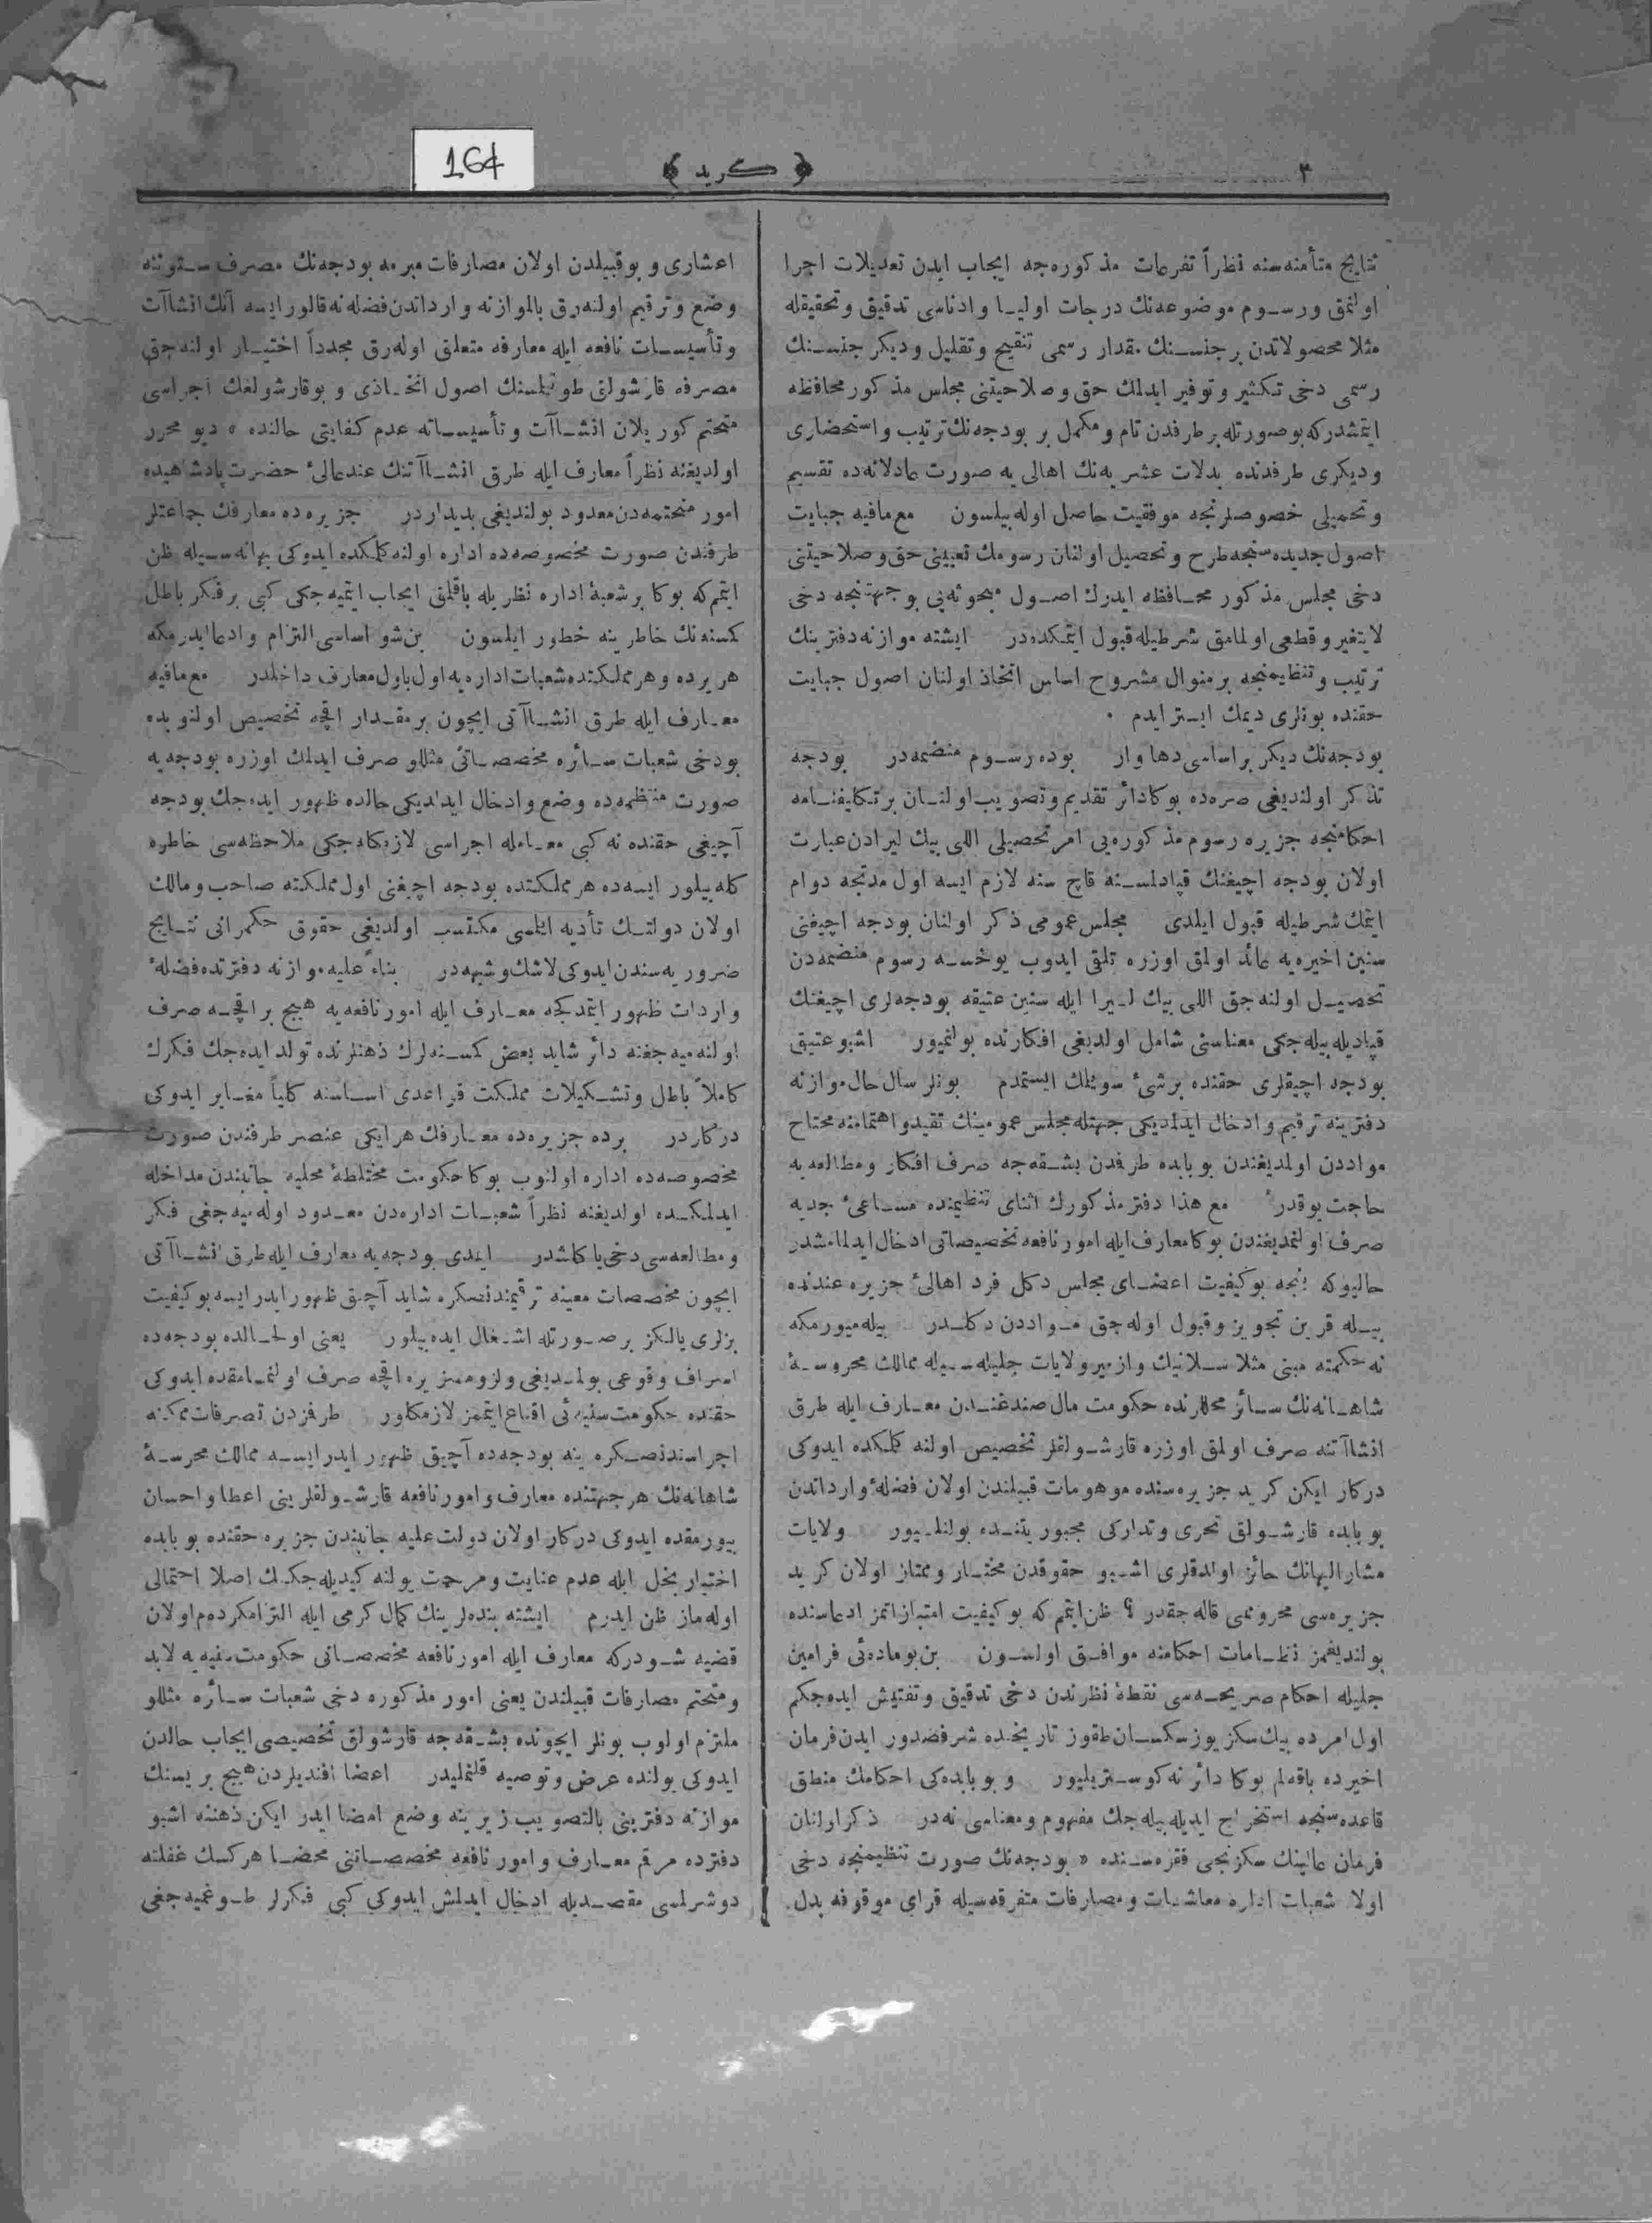 ٣
﴿ كريد ﴾
164
نتايج متأمنه سنه نظراً تفرعات مذكوره جه ايجاب ايدن تعديلات اجرا
اولنمق ورسوم موضوعه نك درجات اوليا وادناسى تدقيق وتحقيقله
مثلا محصولاتدن بر جنسنك مقدار رسمى تنقيح وتقليل وديكر جنسنك
رسمى دخى تكثير وتوفير ايدلمك حق وصلاحيتنى مجلس مذكور محافظه
ايتمشدركه بوصورتله برطرفدن تام ومكمل بر بودجه نك ترتيب واستحضارى
وديكرى طرفدنده بدلات عشريه نك اهالى يه صورت عادلانه ده تقسيم
وتحميلى خصوصلرنجه موفقيت حاصل اوله بيلسون مع مافيه جبايت
اصول جديده سنجه طرح وتحصيل اولنان رسومك تعيينى حق وصلاحيتنى
دخى مجلس مذكور محافظه ايدرك اصول مبحوثه يى بو جهتنجه دخى
لايتغير وقطعى اولمامق شرطيله قبول ايتمكده در ايشته موازنه دفترينك
ترتيب وتنظيمنجه بر منوال مشروح اساس اتخاذ اولنان اصول جبايت
حقنده بونلرى ديمك ايستر ايدم ٠
بودجه نك ديكر بر اساسى دها وار بوده رسوم منضمه در بودجه
تذكر اولنديغى صره ده بوكا دائر تقديم وتصويب اولنان بر تكليفنامه
احكامنجه جزيره رسوم مذكوره يى امر تحصيلى اللى بيك ليرادن عبارت
اولان بودجه اچيغنك قپادلمسنه قاچ سنه لازم ايسه اول مدتجه دوام
ايتمك شرطيله قبول ايلدى مجلس عمومى ذكر اولنان بودجه اچيغنى
سنين اخيره يه عائد اولمق اوزره تلقى ايدوب يوخسه رسوم منضمه دن
تحصيل اولنه جق اللى بيك ليرا ايله سنين عتيقه بودجه لرى اچيغنك
قپاديله بيله جكى معناسنى شامل اولديغى افكارنده بولنميور اشبو عتيق
بودجه اچيقلرى حقنده بر شئ سويلمك ايستمدم بونلر سال حال موازنه
دفترينه ترقيم وادخال ايدلمديكى جهتله مجلس عمومينك تقيد واهتمامنه محتاج
مواددن اولمديغندن بو بابده طرفدن بشقه جه صرف افكار ومطالعه يه
حاجت يوقدر مع هذا دفتر مذكورك اثناى تنظيمنده مساعئ جديه
صرف اولنمديغندن بوكا معارف ايله امور نافعه تخصيصاتى ادخال ايدلمامشدر
حالبوكه بنجه بوكيفيت اعضاى مجلس دكل فرد اهالئ جزيره عندنده
بيله قرين تجويز وقبول اوله جق موا‌ددن دكلدر بيله ميورمكه
نه حكمته مبنى مثلا سلانيك وازمير ولايات جليله سيله ممالك محروسۀ
شاهانه نك سائر محللرنده حكومت مال صندغندن معارف ايله طرق
انشاآتنه صرف اولمق اوزره قارشولقلر تخصيص اولنه كلمكده ايدوكى
دركار ايكن كريد جزيره سنده موهومات قبيلندن اولان فضلۀ وارداتدن
بو بابده قارشولق تحرى وتداركى مجبوريتنده بولنليور ولايات
مشار اليهانك حائز اولدقلرى اشبو حقوقدن مختار وممتاز اولان كريد
جزيره سى محرومى قاله جقدر ؟ ظن ايتمم كه بو كيفيت امتيازاتمز ادعاسنده
بولنديغمز نظامات احكامنه موافق اولسون بن بوماده ئى فرامين
جليله احكام صريحه سى نقطۀ نظرندن دخى تدقيق وتفتيش ايده جكم
اول امرده بيك سكز يوز سكسان طقوز تاريخنده شرفصدور ايدن فرمان
اخيرده باقه لم بوكا دائر نه كوستريليور و بو بابده كى احكامك منطق
قاعده سنجه استخراج ايديله بيله جك مفهوم ومعناسى نه در ذكر اولنان
فرمان عالينك سكزنجى فقره سنده « بودجه نك صورت تنظيمنجه دخى
اولا شعبات اداره معاشات ومصارفات متفرقه سيله قراى موقوفه بدل
اعشارى و بو قبيلدن اولان مصارفات مبرمه بودجه نك مصرف ستوننه
وضع وترقيم اولنه رق بالموازنه وارداتدن فضله نه قالور ايسه آنك انشاآت
وتأسيسات نافعه ايله معارفه متعلق اوله رق مجدداً اختيار اولنه جق
مصرفه قارشولق طوتلمسنك اصول اتخاذى و بو قارشولغك اجراسى
متحتم كوريلان انشاآت وتأسيساته عدم كفايتى حالنده » ديو محرر
اولديغنه نظراً معارف ايله طرق انشاآتنك عندعالئ حضرت پادشاهيده
امور متحتمه دن معدود بولنديغى بديداردر جزيره ده معارفك جماعتلر
طرفندن صورت مخصوصه ده اداره اولنه كلمكده ايدوكى بهانه سيله ظن
ايتمم كه بوكا بر شعبۀ اداره نظريله باقلمق ايجاب ايتميه جكى كبى بر فكر باطل
كمسنه نك خاطرينه خطور ايلسون بن شو اساسى التزام وادعا ايدرمكه
هر يرده و هر مملكتده شعبات اداريه اول باول معارف داخلدر مع مافيه
معارف ايله طرق انشاآتى ايچون بر مقدار اقچه تخصيص اولنو بده
بودخى شعبات سائره مخصصاتى مثللو صرف ايدلمك اوزره بودجه يه
صورت منتظمه ده وضع وادخال ايدلديكى حالده ظهور ايده جك بودجه
آچيغى حقنده نه كبى معامله اجراسى لازمكله جكى ملاحظه سى خاطره
كله بيلور ايسه ده هر مملكتده بودجه اچيغنى اول مملكته صاحب ومالك
اولان دولتك تأديه ايتمسى مكتسب اولديغى حقوق حكمرانى نتايج
ضروريه سندن ايدوكى لاشك و شبهه در بناءً عليه موازنه دفترنده فضلۀ
واردات ظهور ايتمدكجه معارف ايله امور نافعه يه هيچ بر اقچه صرف
اولنه ميه جغنه دائر شايد بعض كمسنه لرك ذهنلرنده تولد ايده جك فكرك
كاملاً باطل وتشكيلات مملكت قواعدى اساسنه كلياً مغاير ايدوكى
دركاردر برده جزيره ده معارفك هر ايكى عنصر طرفندن صورت
مخصوصه ده اداره اولنوب بوكا حكومت مختلطۀ محليه جانبندن مداخله
ايدلمكده اولديغنه نظراً شعبات اداره دن معدود اوله ميه جغى فكر
ومطالعه سى دخى ياكلشدر ايمدى بودجه يه معارف ايله طرق انشاآتى
ايچون مخصصات معينه ترقيمندنصكره شايد آچيق ظهور ايدر ايسه بو كيفيت
بزلرى يالكز بر صورتله اشغال ايده بيلور يعنى اولحالده بودجه ده
اسراف وقوعى بولمديغى ولزومسز يره اقچه صرف اولنمامقده ايدوكى
حقنده حكومت سنيه ئى اقناع ايتمز لازمكلور طرفزدن تصرفات ممكنه
اجراسندنصكره ينه بودجه ده آچيق ظهور ايدر ايسه ممالك محروسۀ
شاهانه نك هر جهتنده معارف و امور نافعه قارشولقلرينى اعطا و احسان
بيورمقده ايدوكى دركار اولان دولت عليه جانبندن جزيره حقنده بو بابده
اختيار بخل ايله عدم عنايت ومرحمت يولنه كيديله جكك اصلا احتمالى
اوله ماز ظن ايدرم ايشته بنده لرينك كمال كرمى ايله التزامكرده م اولان
قضيه شودركه معارف ايله امور نافعه مخصصاتى حكومت سنيه يه لابد
ومتحتم مصارفات قبيلندن يعنى امور مذكوره دخى شعبات سائره مثللو
ملتزم اولوب بونلر ايچونده بشقه جه قارشولق تخصيصى ايجاب حالدن
ايدوكى يولنده عرض وتوصيه قلنمليدر اعضا افنديلردن هيچ بريسنك
موازنه دفترينى بالتصويب زيرينه وضع امضا ايدر ايكن ذهننه اشبو
دفترده مرقم معارف وامور نافعه مخصصاتنى محضا هركسك غفلته
دوشرلمسى مقصديله ادخال ايدلمش ايدوكى كبى فكرلر طوغميه جغى